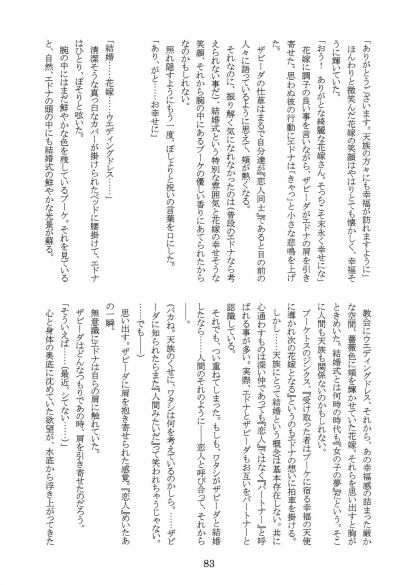 「ありがとうございます。天族の方々にも幸福が訪れますように」
ほんわりと微笑んだ花嫁の笑顔はやはりとても懐かしく、幸福そ
うに輝いていた。
「おう! ありがとな綺麗な花嫁さん。そっちこそ末永く幸せにな」
花嫁に調子の良い事を言いながら、ザビーダがエドナの肩を引き
寄せた。思わぬ彼の行動にエドナは『きゃっ』と小さな悲鳴を上げ
た。
ザビーダの仕草はまるで自分達が『恋人同士』であると目の前の
人々に語っているように思えて、頬が熱くなる。
それなのに、振り解く気になれなかったのは（普段のエドナなら考
えられない事だ）、結婚式という特別な雰囲気と花嫁の幸せそうな
笑顔、それから腕の中にあるブーケの優しい香りにあてられたから
なのかもしれない。
照れ隠すようにもう一度、ぽしょりと祝いの言葉を口にした。
「あり、がと……お幸せに」
「結婚……花嫁……ウエディングドレス……」
清潔そうな真っ白なカバーが掛けられたベッドに腰掛けて、エドナ
はひとり、ぽそりと呟いた。
腕の中にはまだ鮮やかな色を残しているブーケ。それを見ている
と、自然、エドナの頭の中にも結婚式の鮮やかな光景が蘇る。
教会にウエディングドレス、それから、あの幸福感の詰まった厳か
な空間。薔薇色に頬を輝かせていた花嫁。それらを思い出すと胸が
ときめいた。結婚式とは何時の時代も『女の子の夢』だという。そこ
に人間も天族も関係ないのかもしれない。
ブーケトスのジンクス、『受け取った者はブーケに宿る幸福の天使
に導かれ次の花嫁となる』というのもエドナの想いに拍車を掛ける。
しかし――天族にとって結婚という概念は基本存在しない。共に
心通わすものは深い仲であっても『恋人』ではなく『パートナー』と呼
ばれる事が多い。実際、エドナとザビーダもお互いをパートナーと
認識している。
それでも、つい重ねてしまった。もしも、ワタシがザビーダと結婚
したなら――人間のそれのように――恋人と呼び合って、それから
――。
（バカね。天族のくせに、ワタシは何を考えているのかしら。……ザビ
ーダに知られたらまた『人間みたいだ』って笑われちゃうじゃない。
……でも――）
思い出す。ザビーダに肩を抱き寄せられた感覚。『恋人』めいたあ
の一瞬。
無意識にエドナは自らの肩に触れていた。
ザビーダはどんなつもりであの時、肩を引き寄せたのだろう。
「そういえば……（最近、シテない……）」
心と身体の奥底に沈めていた欲望が、水底から浮き上がってきた
83